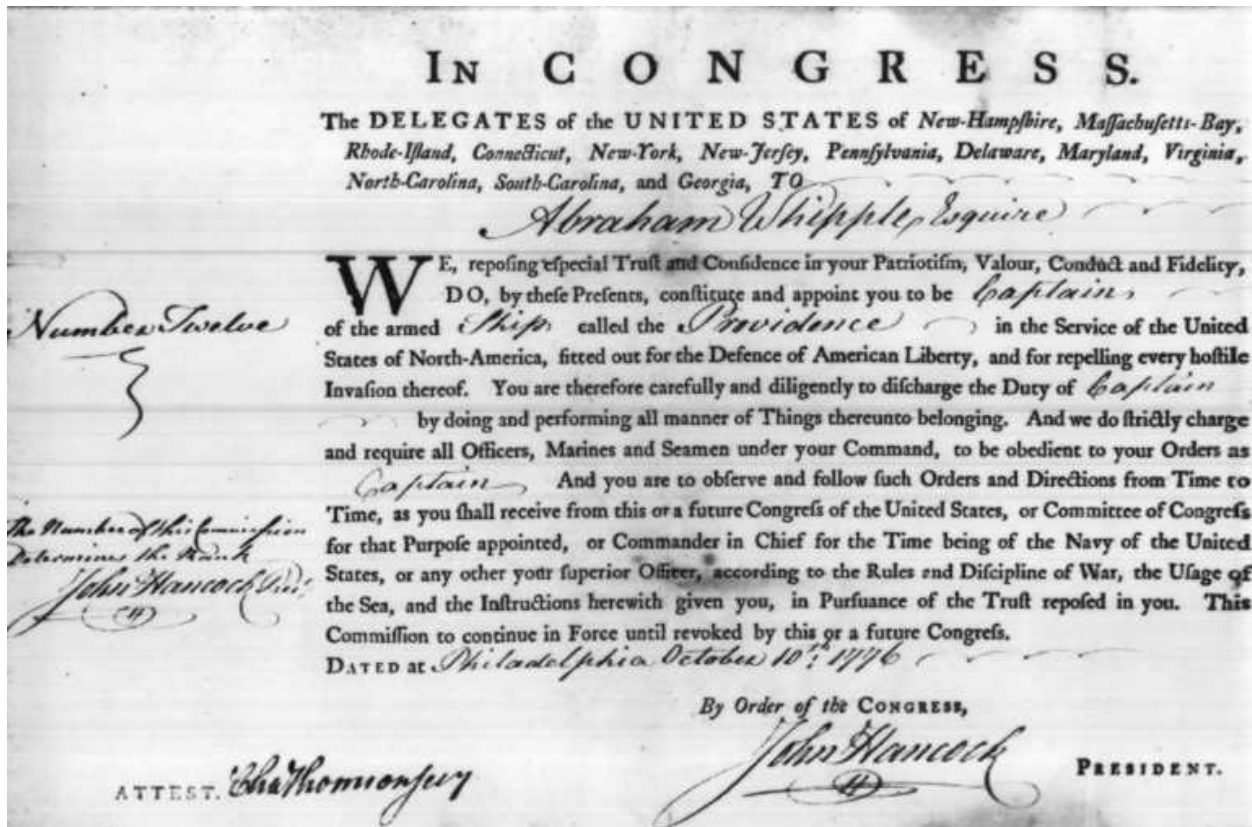 IN CONGRESS.
The DELEGATES of the UNITED STATES of New-Hampſhire, Maſſachuſetts-Bay,
Rhode-Iſland, Connecticut, New-York, New-Jerſey, Pennſylvania, Delaware, Maryland, Virginia,
North-Carolina, South-Carolina, and Georgia, TO
Abraham Whipple, Esquire
WE, repoſing eſpecial Truſt and Confidence in your Patriotiſm, Valour, Conduct and Fidelity,
DO, by theſe Preſents, conſtitute and appoint you to be Captain
of the armed Ship called the Providence in the Service of the United
States of North-America, fitted out for the Defence of American Liberty, and for repelling every hoſtile
Invaſion thereof. You are therefore carefully and diligently to diſcharge the Duty of Captain
by doing and performing all manner of Things thereunto belonging. And we do ſtrictly charge
and require all Officers, Marines and Seamen under your Command, to be obedient to your Orders as
Captain And you are to obſerve and follow ſuch Orders and Directions from Time to
Time, as you ſhall receive from this or a future Congreſs of the United States, or Committee of Congreſs
for that Purpoſe appointed, or Commander in Chief for the Time being of the Navy of the United
States, or any other your ſuperior Officer, according to the Rules and Diſcipline of War, the Uſage of
the Sea, and the Inſtructions herewith given you, in Purſuance of the Truſt repoſed in you. This
Commiſſion to continue in Force until revoked by this or a future Congreſs.
DATED at Philadelphia October 10th 1776
By Order of the CONGRESS,
John Hancock PRESIDENT.
ATTEST. Cha Thomson secy
Number Twelve
The Number of this Commission
Determines the Rank
John Hancock Presi